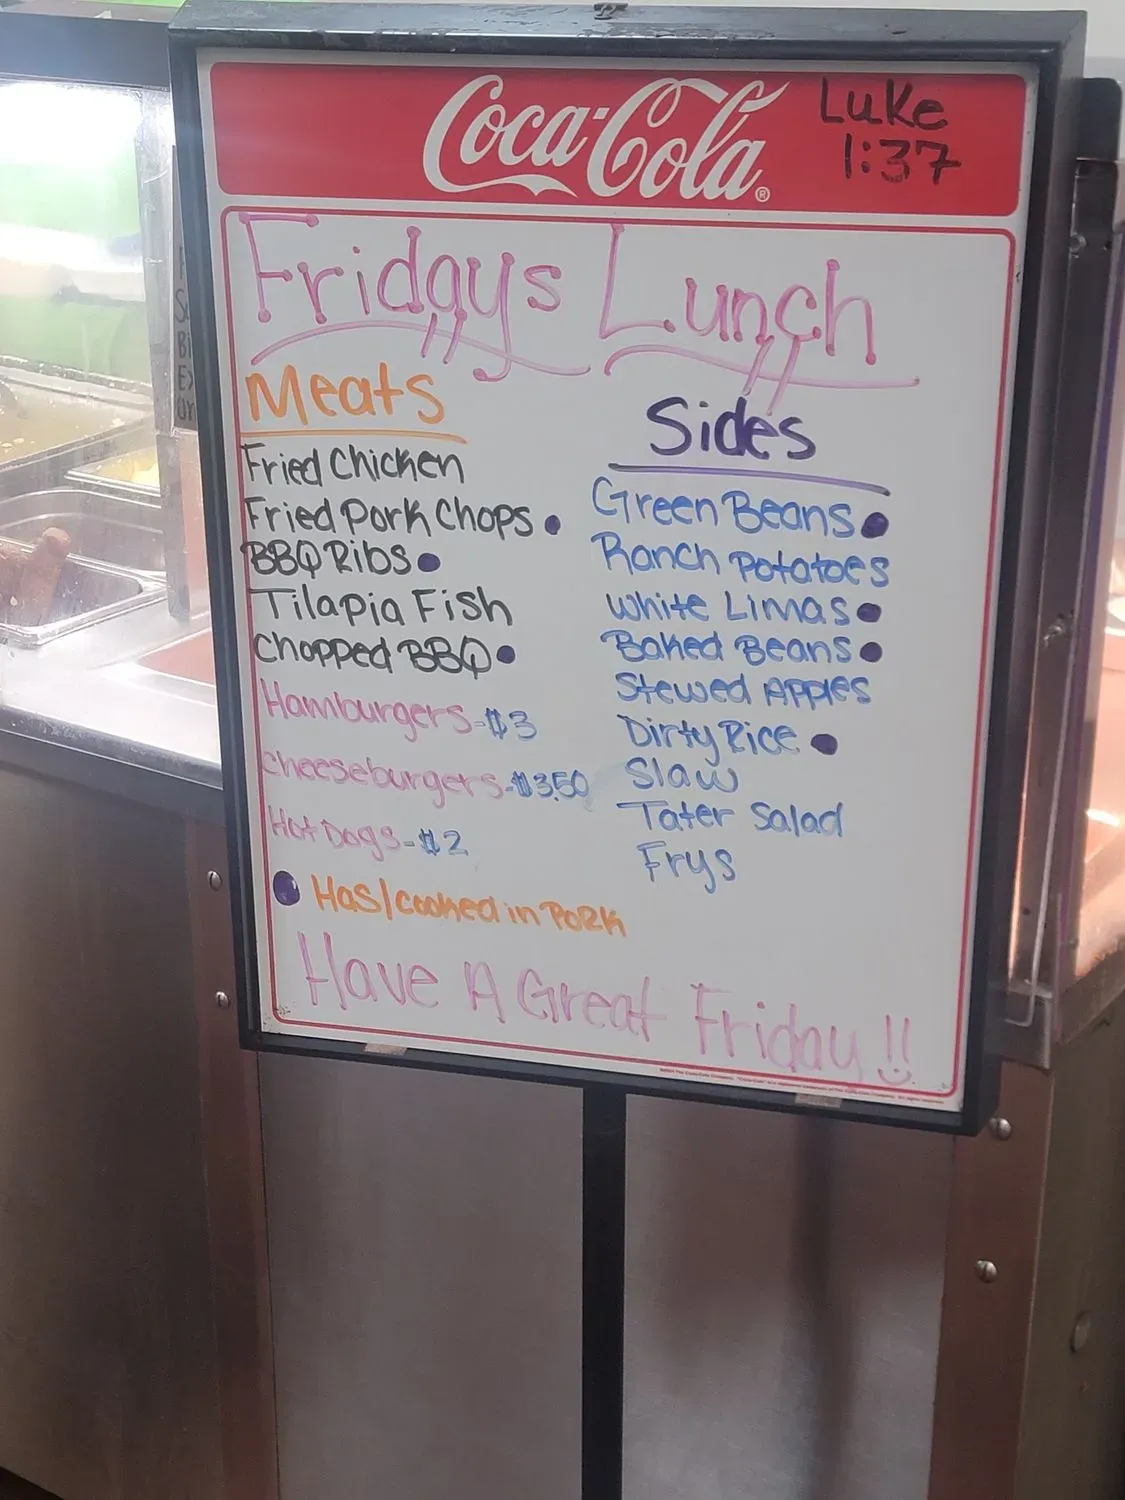 Coca-Cola®
Luke
1:37
Fridays Lunch
Meats
Fried Chicken
Fried Pork Chops ●
BBQ Ribs ●
Tilapia Fish
Chopped BBQ ●
Hamburgers-$3
cheeseburgers-$3.50
Hot Dogs-$2
Sides
Green Beans ●
Ranch Potatoes
White Limas ●
Baked Beans ●
Stewed Apples
Dirty Rice ●
Slaw
Tater Salad
Frys
● Has/cooked in Pork
Have A Great Friday!!